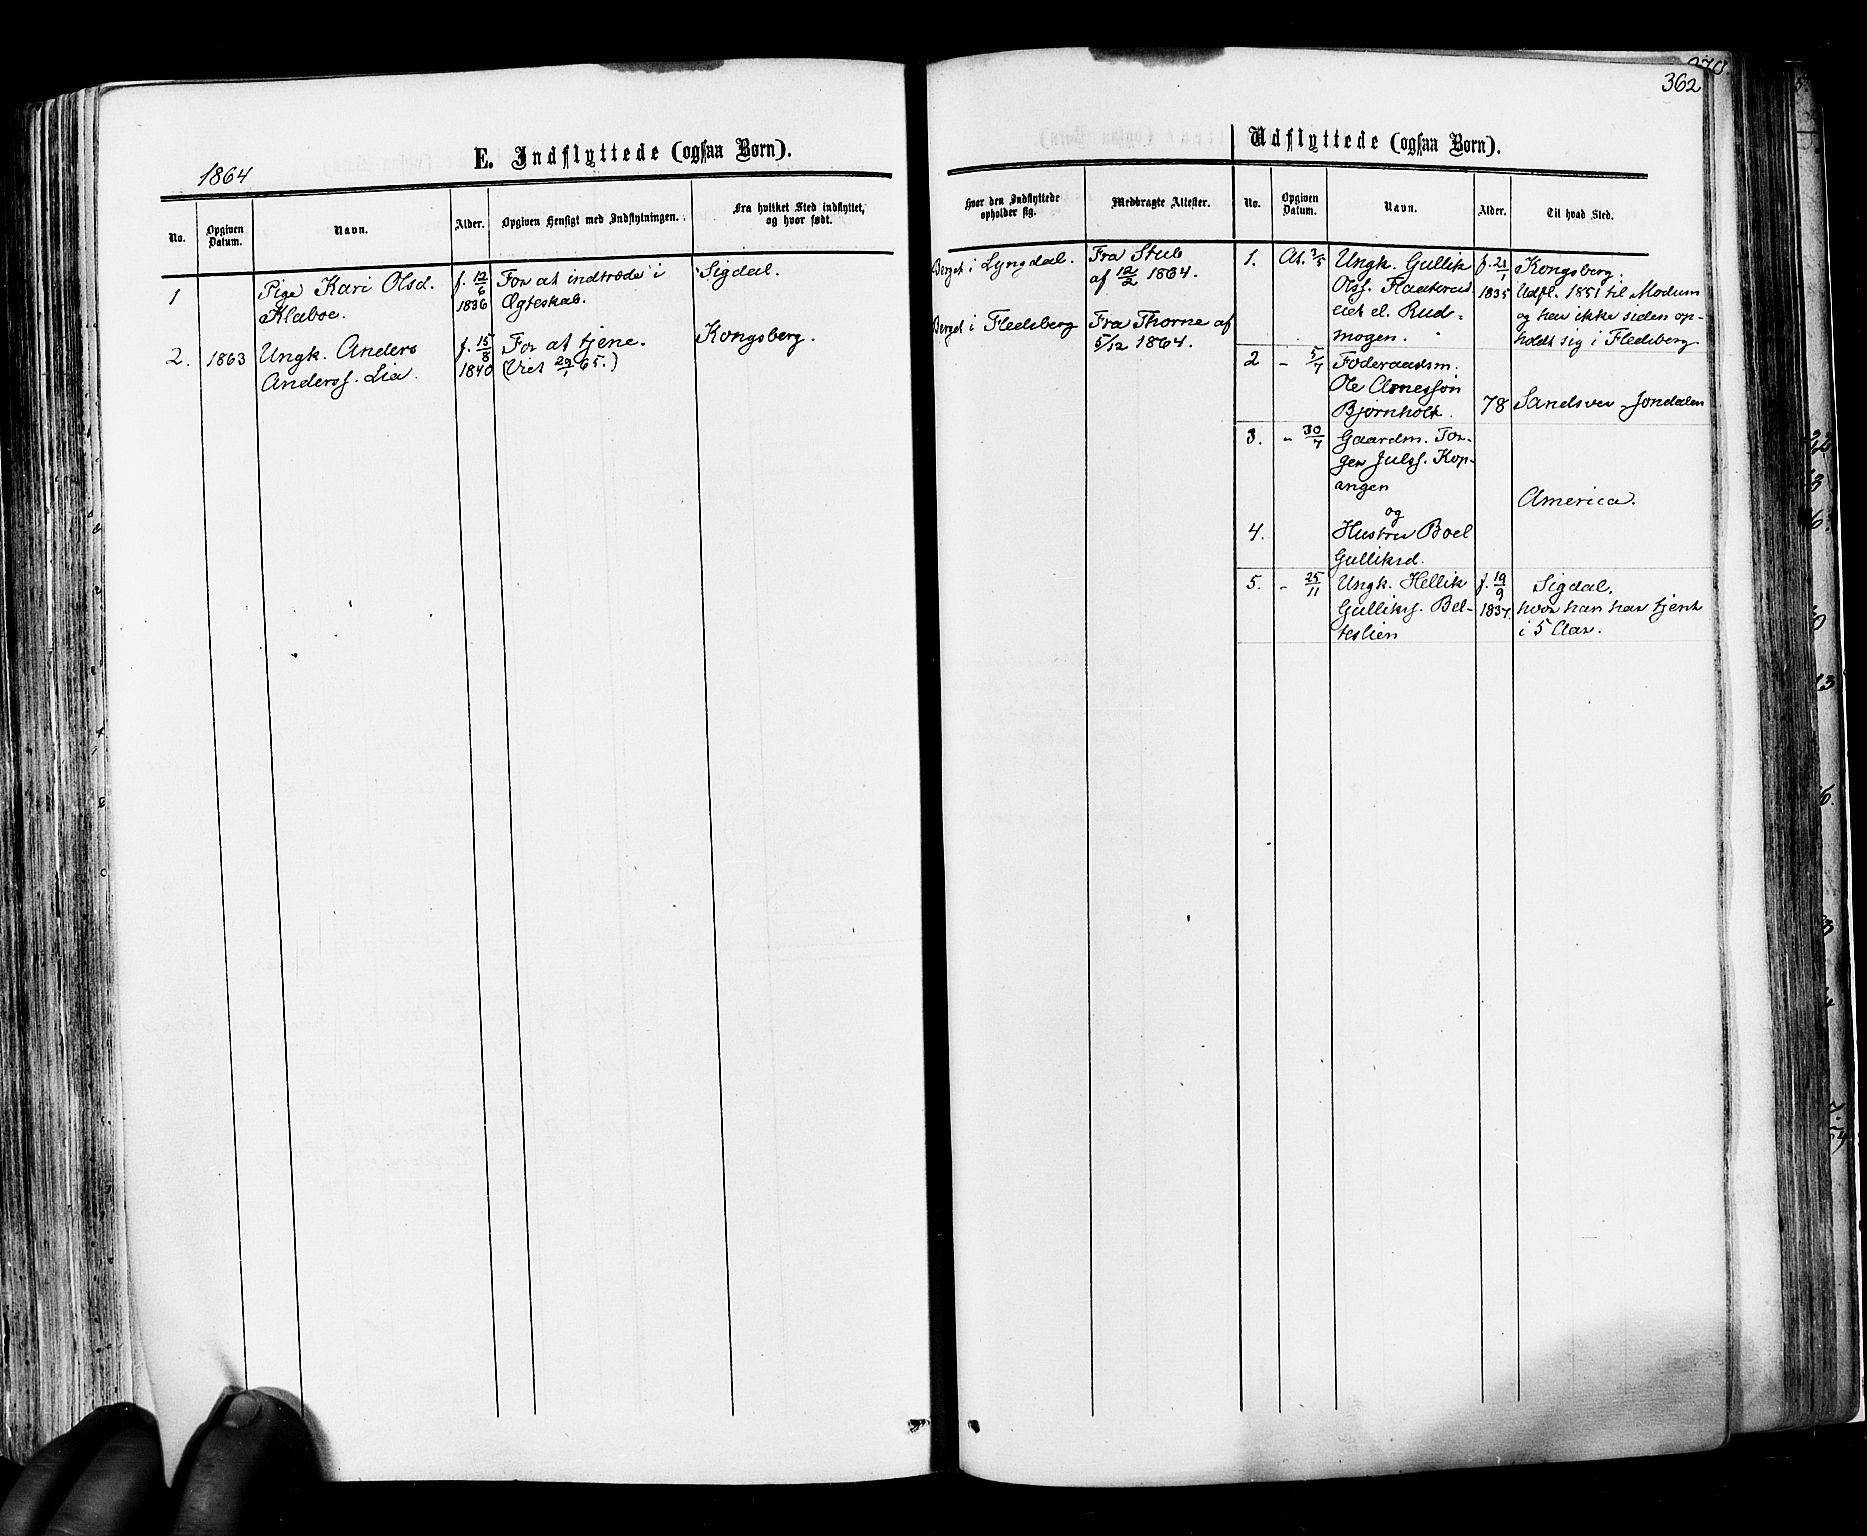 362
1864
E. Indflyttede (ogsaa Børn).
No.
Opgiven Datum.
Navn.
Alder.
Opgiven Hensigt med Indflytningen.
Fra hvilket Sted indflyttet,
og hvor født.
1
Pige Kari Olsd.
Klaboe.
f. 12/6
1836
For at indtræde i
Ægteskab.
Sigdal.
2.
1863
Ungk. Anders
Anderss. Lia.
f. 15/8
1840
For at tjene.
(Viet 29/1 65.)
Kongsberg.
Hvor den Indflyttede
opholder sig.
Medbragte Attester.
Berget i Lyngdal.
Fra Stub
af 12/2 1864.
Berget i Flesberg
Fra Thorne af
5/12 1864.
Udflyttede (ogsaa Børn).
No.
Opgiven
Datum.
Navn.
Alder.
Til hvad Sted.
1.
At. 2/5
Ungk. Gullik
Olss.
eiet el. Rud-
mogen.
f. 21/1
1835
Kongsberg.
Udfl. 1851 til Modum
og har ikke siden op-
holdt sig i Flesberg
2
- 5/7
Føderaadsm.
Ole Arnessøn
Bjørnholt.
78
Sandsver - Jondalen
3.
- 30/7
Gaardm. Tor-
ger Julss. Kop-
angen
og
America.
4.
Hustru Boel
Gulliksd.
5.
- 25/11
Ungk. Hellik
Gulliks. Bel-
teslien
f. 19/9
1837.
Sigdal,
hvor han har tjent
i 5 Aar.